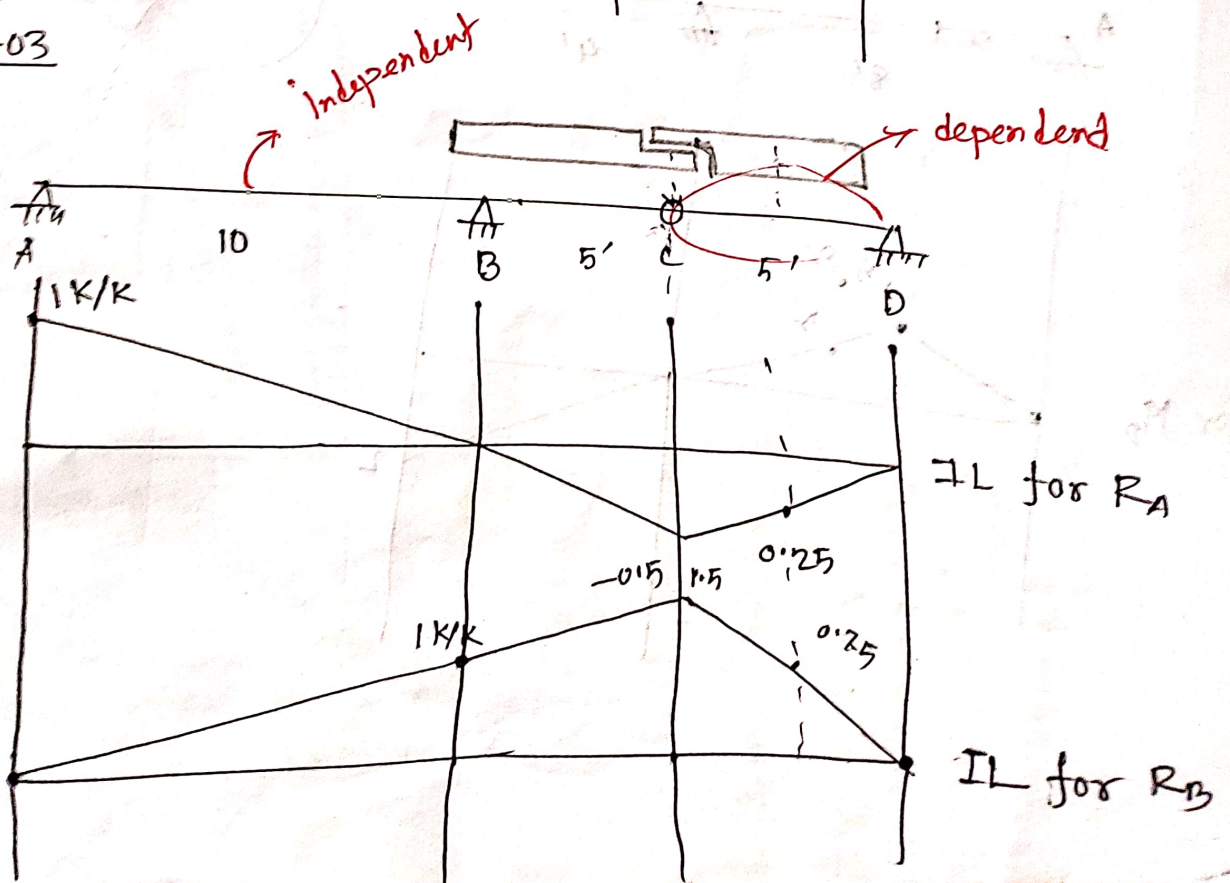 -03
independent
dependend
10
5'
5'
A
B
C
D
1 K/K
IL for RA
-0.5
1.5
0.25
1 K/K
0.25
IL for RB